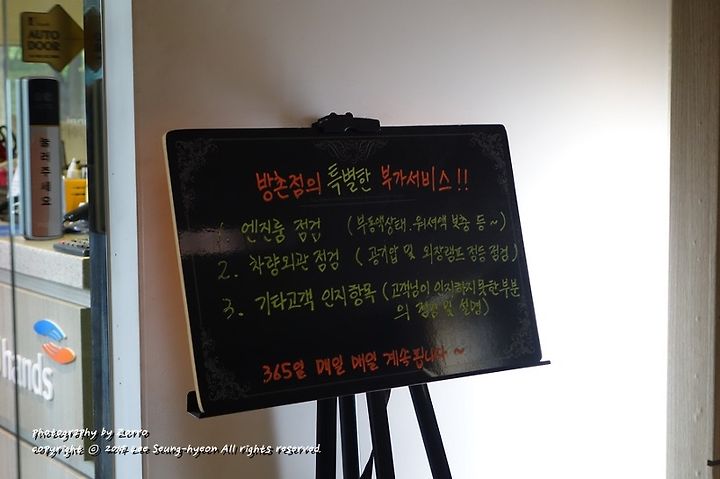 AUTO
DOOR
눌러주세요
방촌점의 특별한 부가서비스!!
1. 엔진룸 점검 (부동액상태.워셔액 보충 등~)
2. 차량외관 점검 (공기압 및 외장램프 점등 점검)
3. 기타고객 인지항목 (고객님이 인지하지 못한 부분
의 점검 및 설명)
365일 매일 매일 계속됩니다~
hands
Photography by Zerro
copyright © 2014 Lee Seung-hyeon All rights reserved.